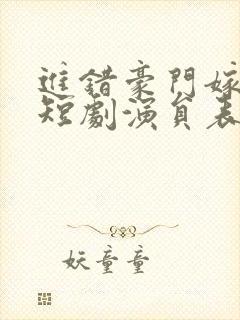 進錯豪門嫁
短劇演員表
妖童童